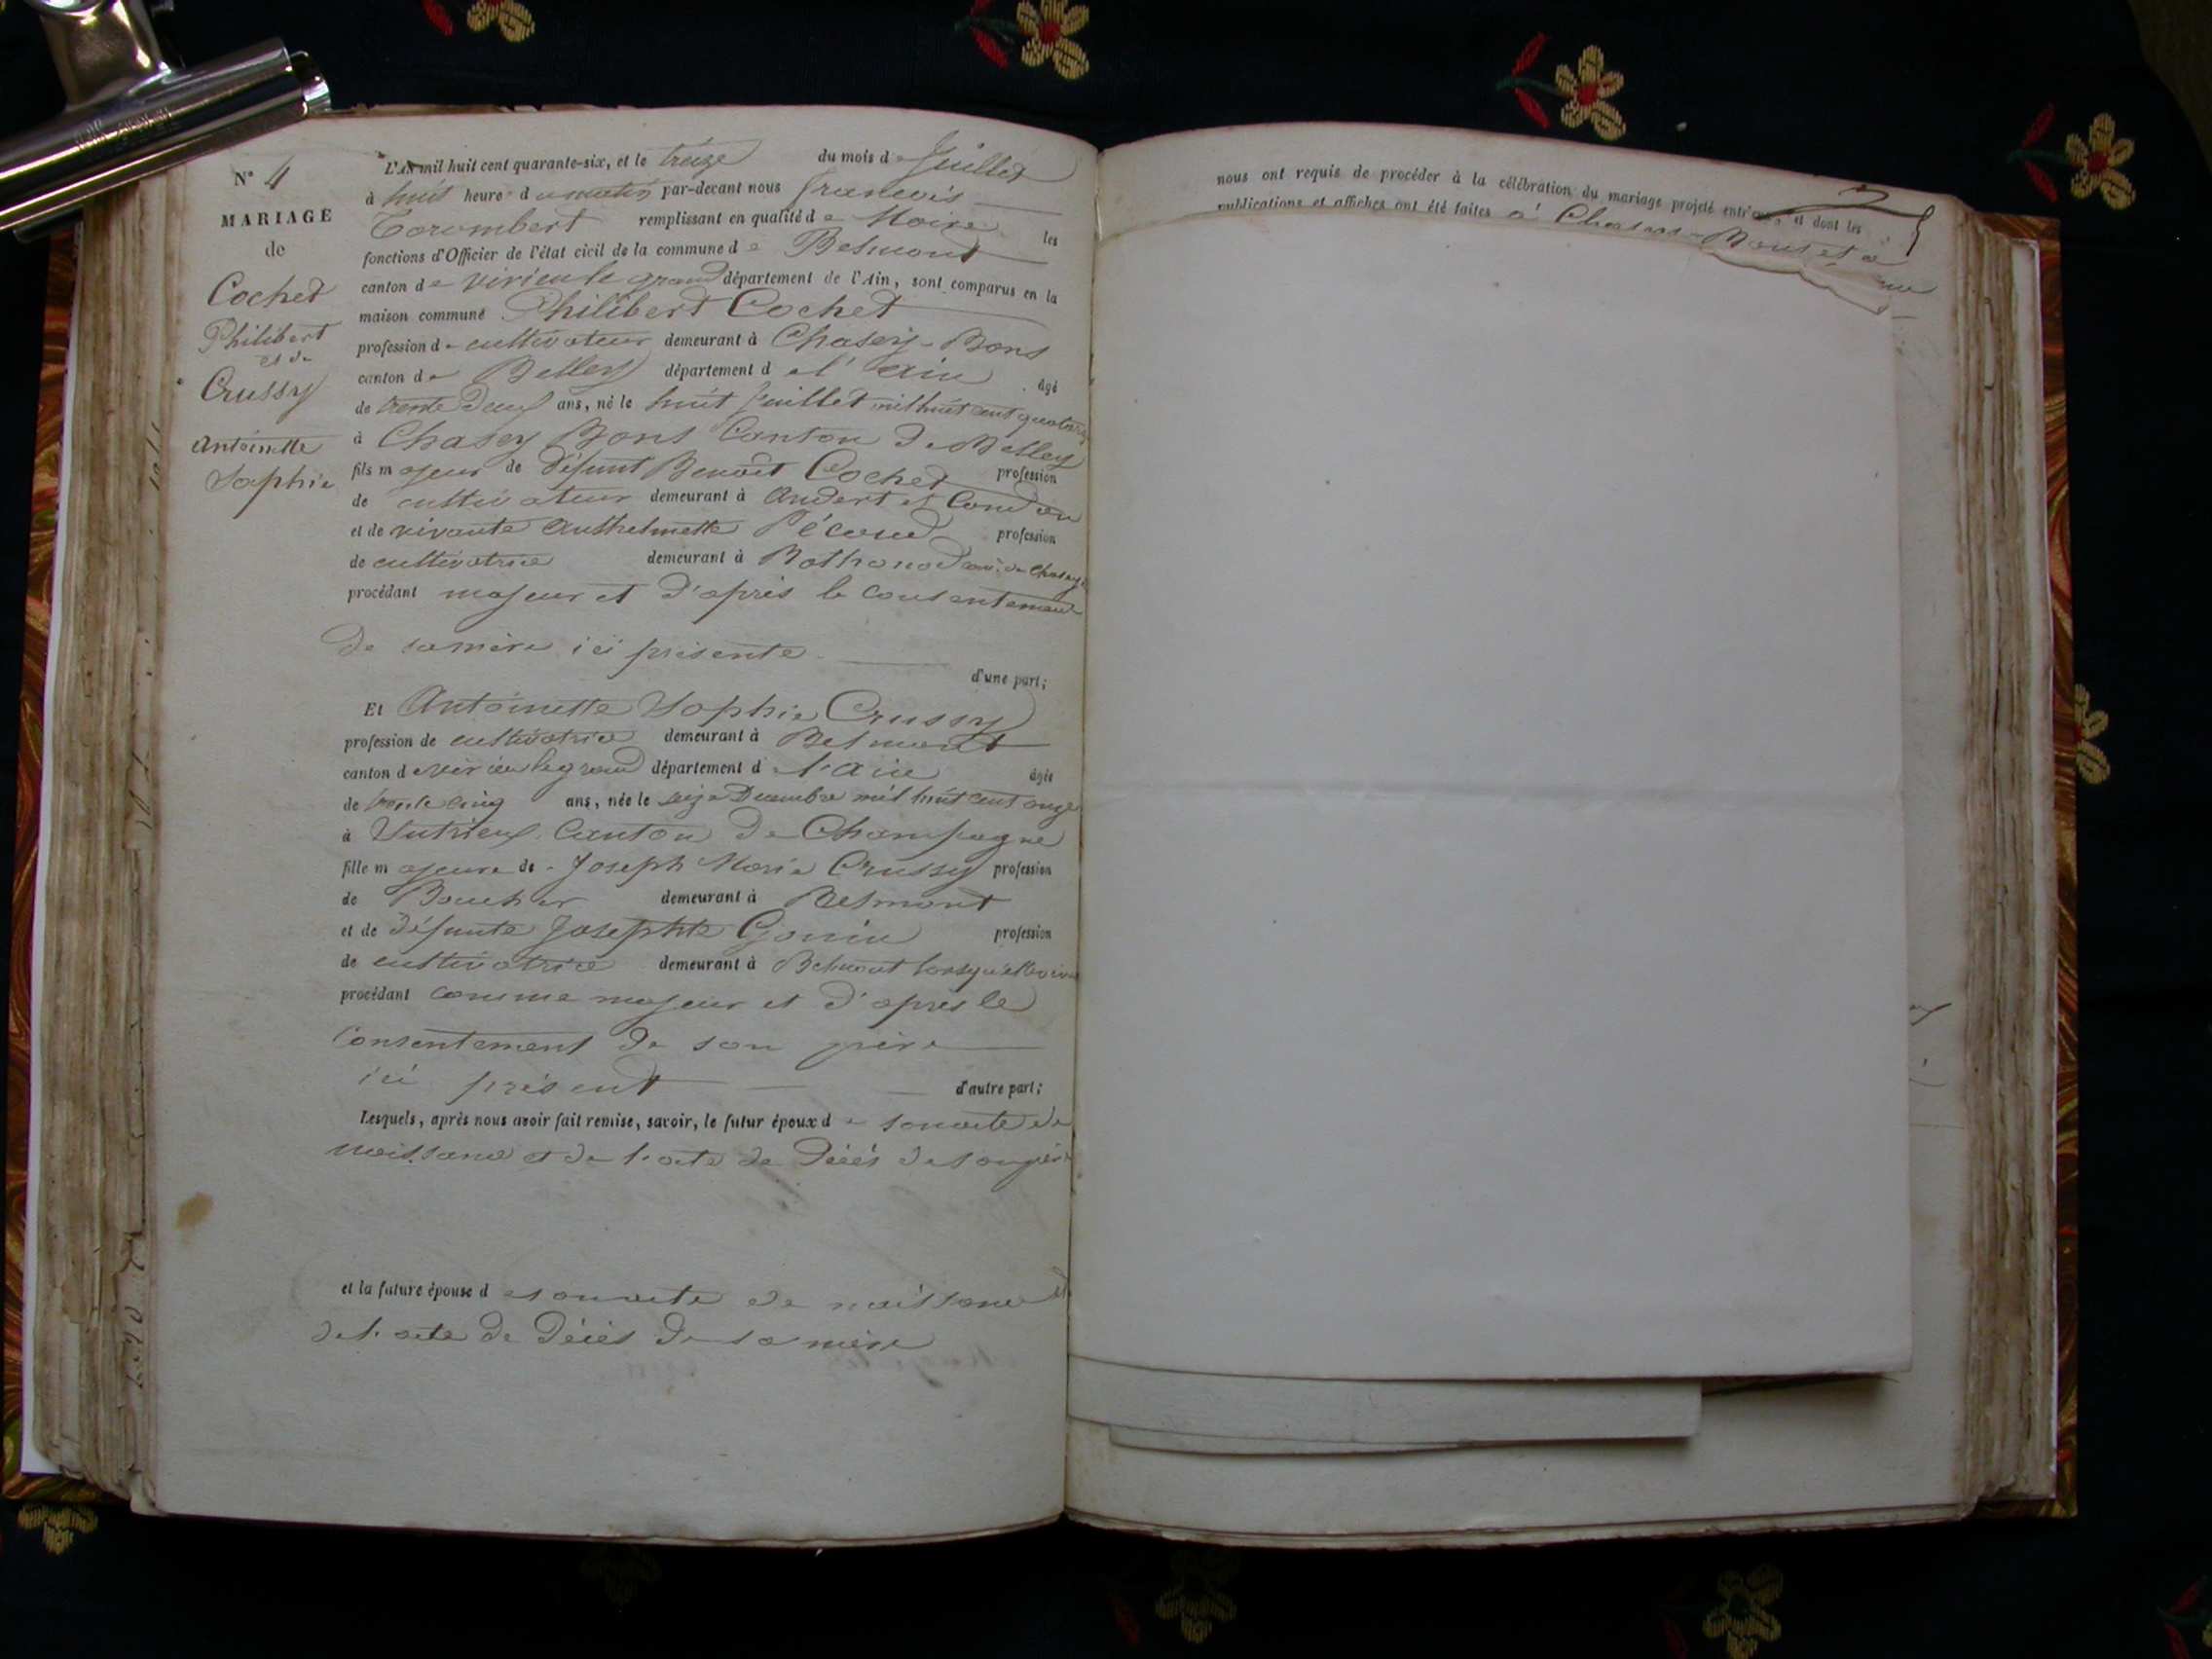 N° 4
MARIAGE
de
Cochet
Philibert
et de
Crussy
Antoinette
Sophie
L'AN mil huit cent quarante-six, et le treize du mois de Juillet
à huit heure du matin par-devant nous francois
Corombert remplissant en qualité de Maire les
fonctions d'Officier de l'état civil de la commune de Belmont
canton de virieu le grand département de l'Ain, sont comparus en la
maison commune Philibert Cochet
profession de cultivateur demeurant à Chasey-Bons
canton de Belley département de l'ain âgé
de trente deux ans, né le huit Juillet mil huit cent quatorze
à Chasey Bons Canton de Belley
fils majeur de défunt Benoit Cochet profession
de cultivateur demeurant à Andert et Condon
et de vivante Anthelmette Pécoud profession
de cultivatrice demeurant à Rothonod com. de Chasey
procédant majeur et d'après le consentement
de sa mère ici présente
d'une part;
Et Antoinette Sophie Crussy
profession de cultivatrice demeurant à Belmont
canton de virieu le grand département de l'ain âgée
de trente cinq ans, née le seize Decembre mil huit cent onze
à Sutrieux Canton de Champagne
fille majeure de Joseph Marie Crussy profession
de Boucher demeurant à Belmont
et de défunte Josephte Gonin profession
de cultivatrice demeurant à Belmont lorsqu'elle vivait
procédant comme majeur et d'après le
Consentement de son père
ici présent d'autre part;
Lesquels, après nous avoir fait remise, savoir, le futur époux de son acte de
naissance et de l'acte de décés de son père
et la future épouse de son acte de naissance et
de l'acte de décés de sa mère
nous ont requis de procéder à la célébration du mariage projeté entr'eux, et dont les
publications et affiches ont été faites à Chasey-Bons et à